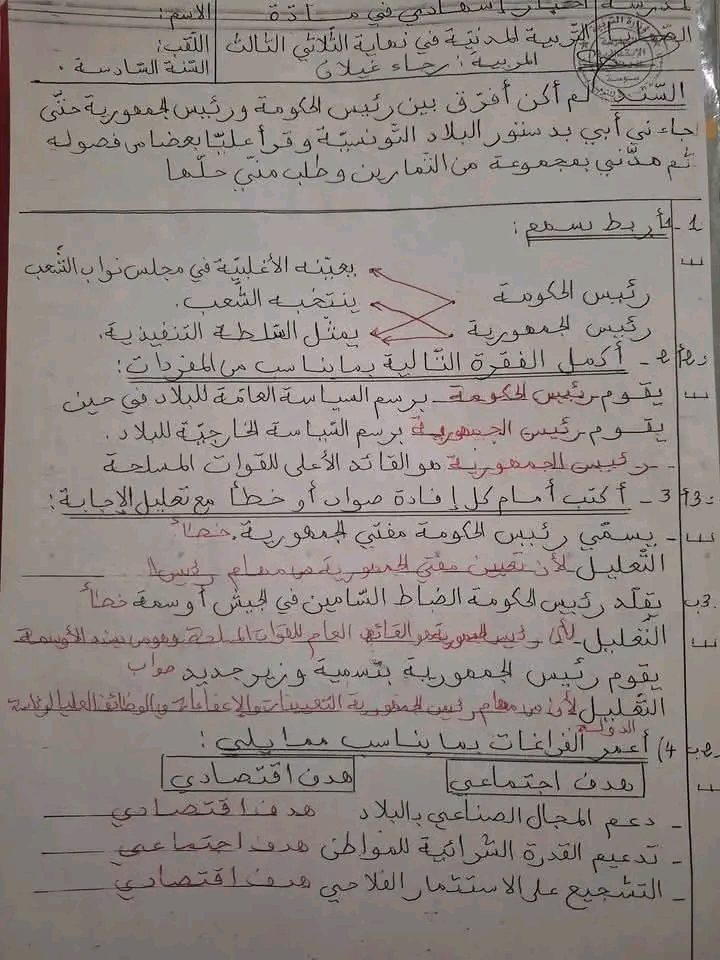 مدرسة
اختبار إشهادي في مادة
الاسم:
التربية المدنية في نهاية الثلاثي الثالث
اللقب:
المربية: رجاء غيلان
السنة السادسة.
السند لم أكن أفرّق بين رئيس الحكومة ورئيس الجمهورية حتّى
جاءني أبي بدستور البلاد التّونسيّة وقرأ عليّا بعضا من فصوله
ثم مدّني بمجموعة من التمارين وطلب منّي حلّها
1-1 أربط بسهم:
يعيّنه الأغلبيّة في مجلس نواب الشّعب
رئيس الحكومة
ينتخبه الشّعب.
رئيس الجمهورية
يمثّل السّلطة التنفيذية.
2- أكمل الفقرة التّالية بما يناسب من المفردات:
يقوم رئيس الحكومة برسم السياسة العامّة للبلاد في حين
يقوم رئيس الجمهورية برسم السّياسة الخارجيّة للبلاد.
- رئيس الجمهورية هو القائد الأعلى للقوات المسلحة
3- أكتب أمام كل إفادة صواب أو خطأ مع تعليل الإجابة:
- يسمّي رئيس الحكومة مفتي الجمهورية. خطأ
التّعليل لأن تعيين مفتي الجمهورية من مهام رئيس
يقلّد رئيس الحكومة الضباط السّامين في الجيش أوسمة خطأ
التّعليل لأن رئيس الجمهورية هو القائد العام للقوات المسلحة وهو من يسند الأوسمة
يقوم رئيس الجمهورية بتسمية وزير جديد صواب
التّعليل لأن من مهام رئيس الجمهورية التعيينات والإعفاءات في الوظائف العليا لرئاسة
الدولة
4) أعمر الفراغات بما يناسب ممّا يلي:
هدف اجتماعي
هدف اقتصادي
- دعم المجال الصناعي بالبلاد هدف اقتصادي
- تدعيم القدرة الشرائية للمواطن هدف اجتماعي
- التشجيع على الاستثمار الفلاحي هدف اقتصادي